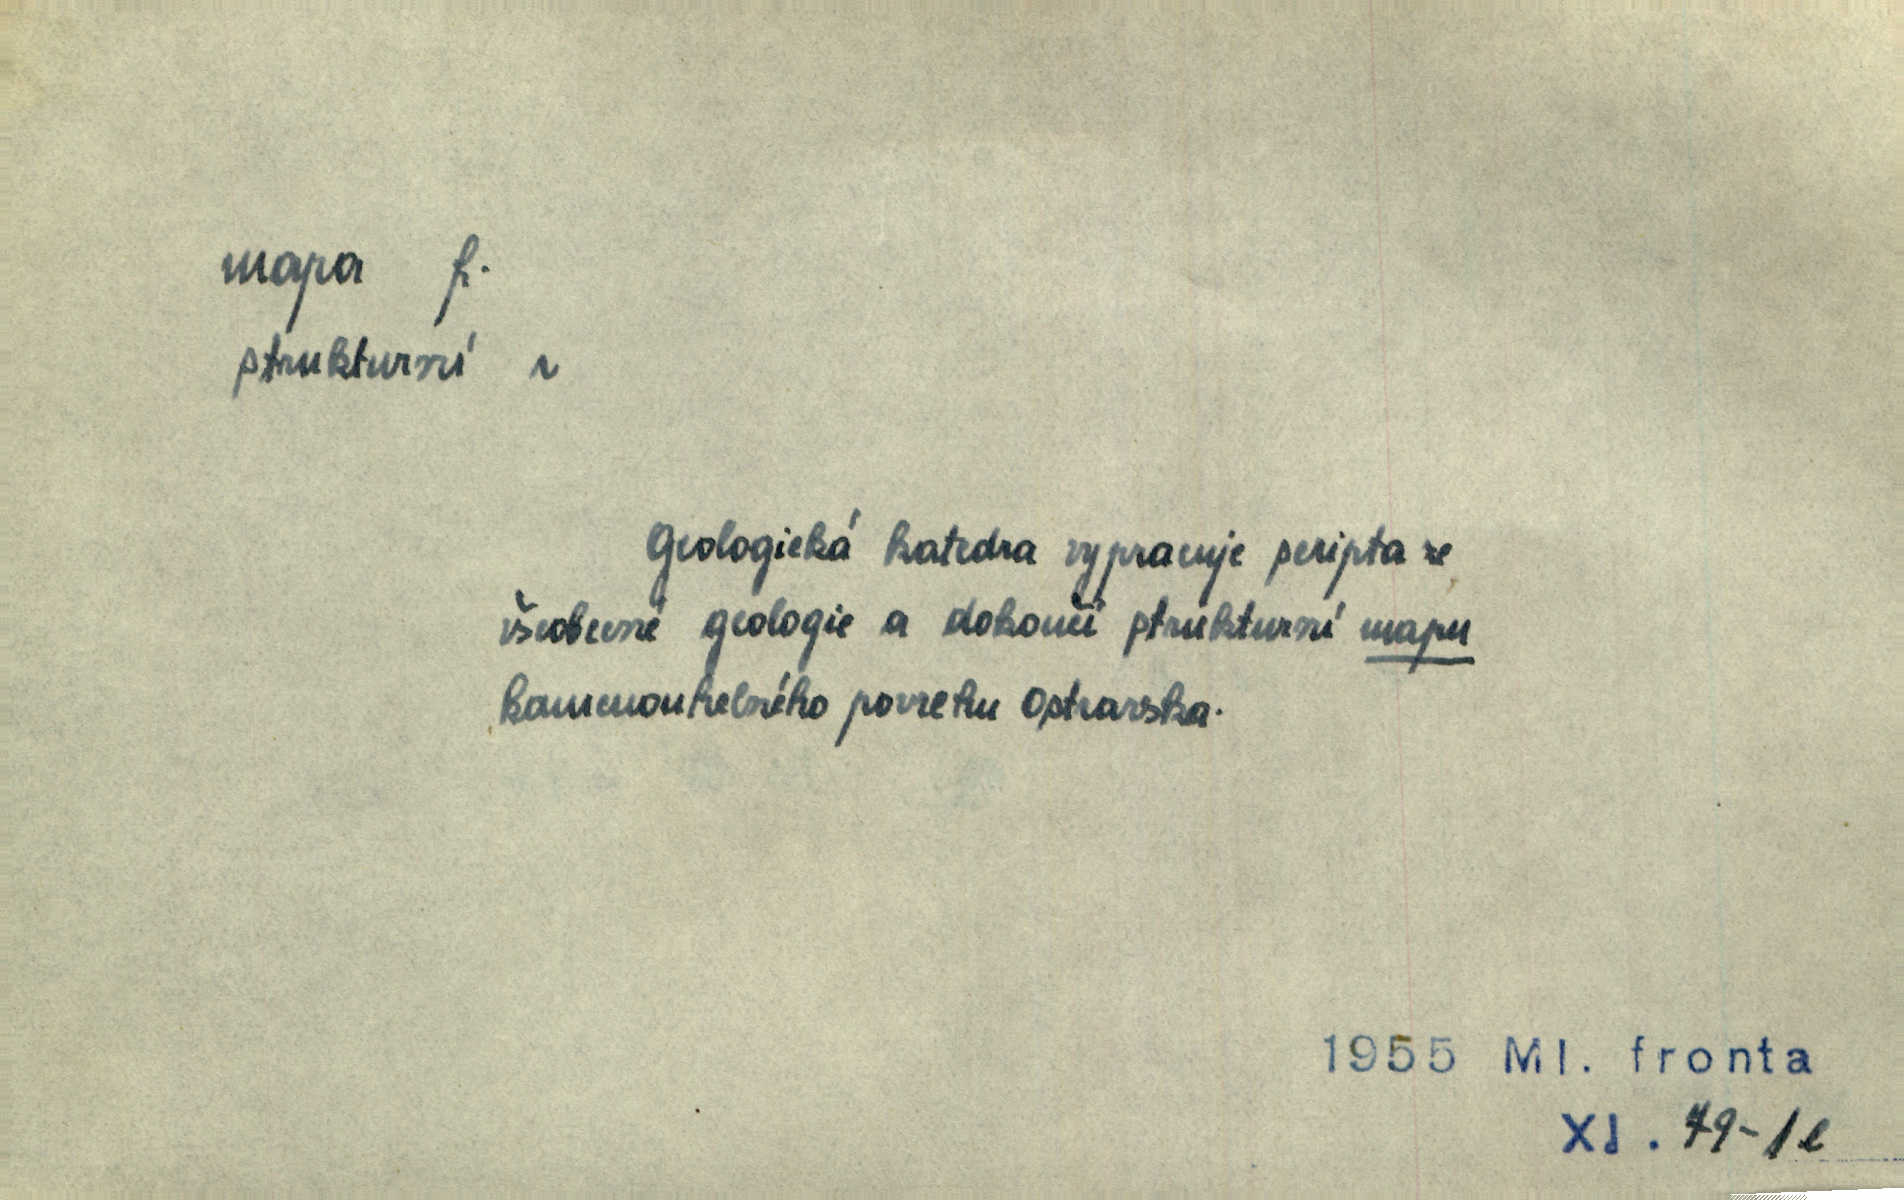 mapa f.
strukturní r
Geologická katedra vypracuje scripta ze
všeobecné geologie a dokončí strukturní mapu
kamenouhelného povrchu Ostravska.
1955 Ml. fronta
XI. 79-1c